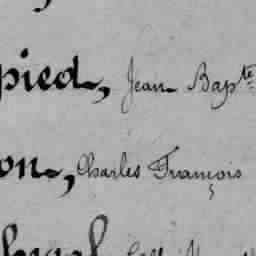 pied, Jean Bapte
on, Charles François